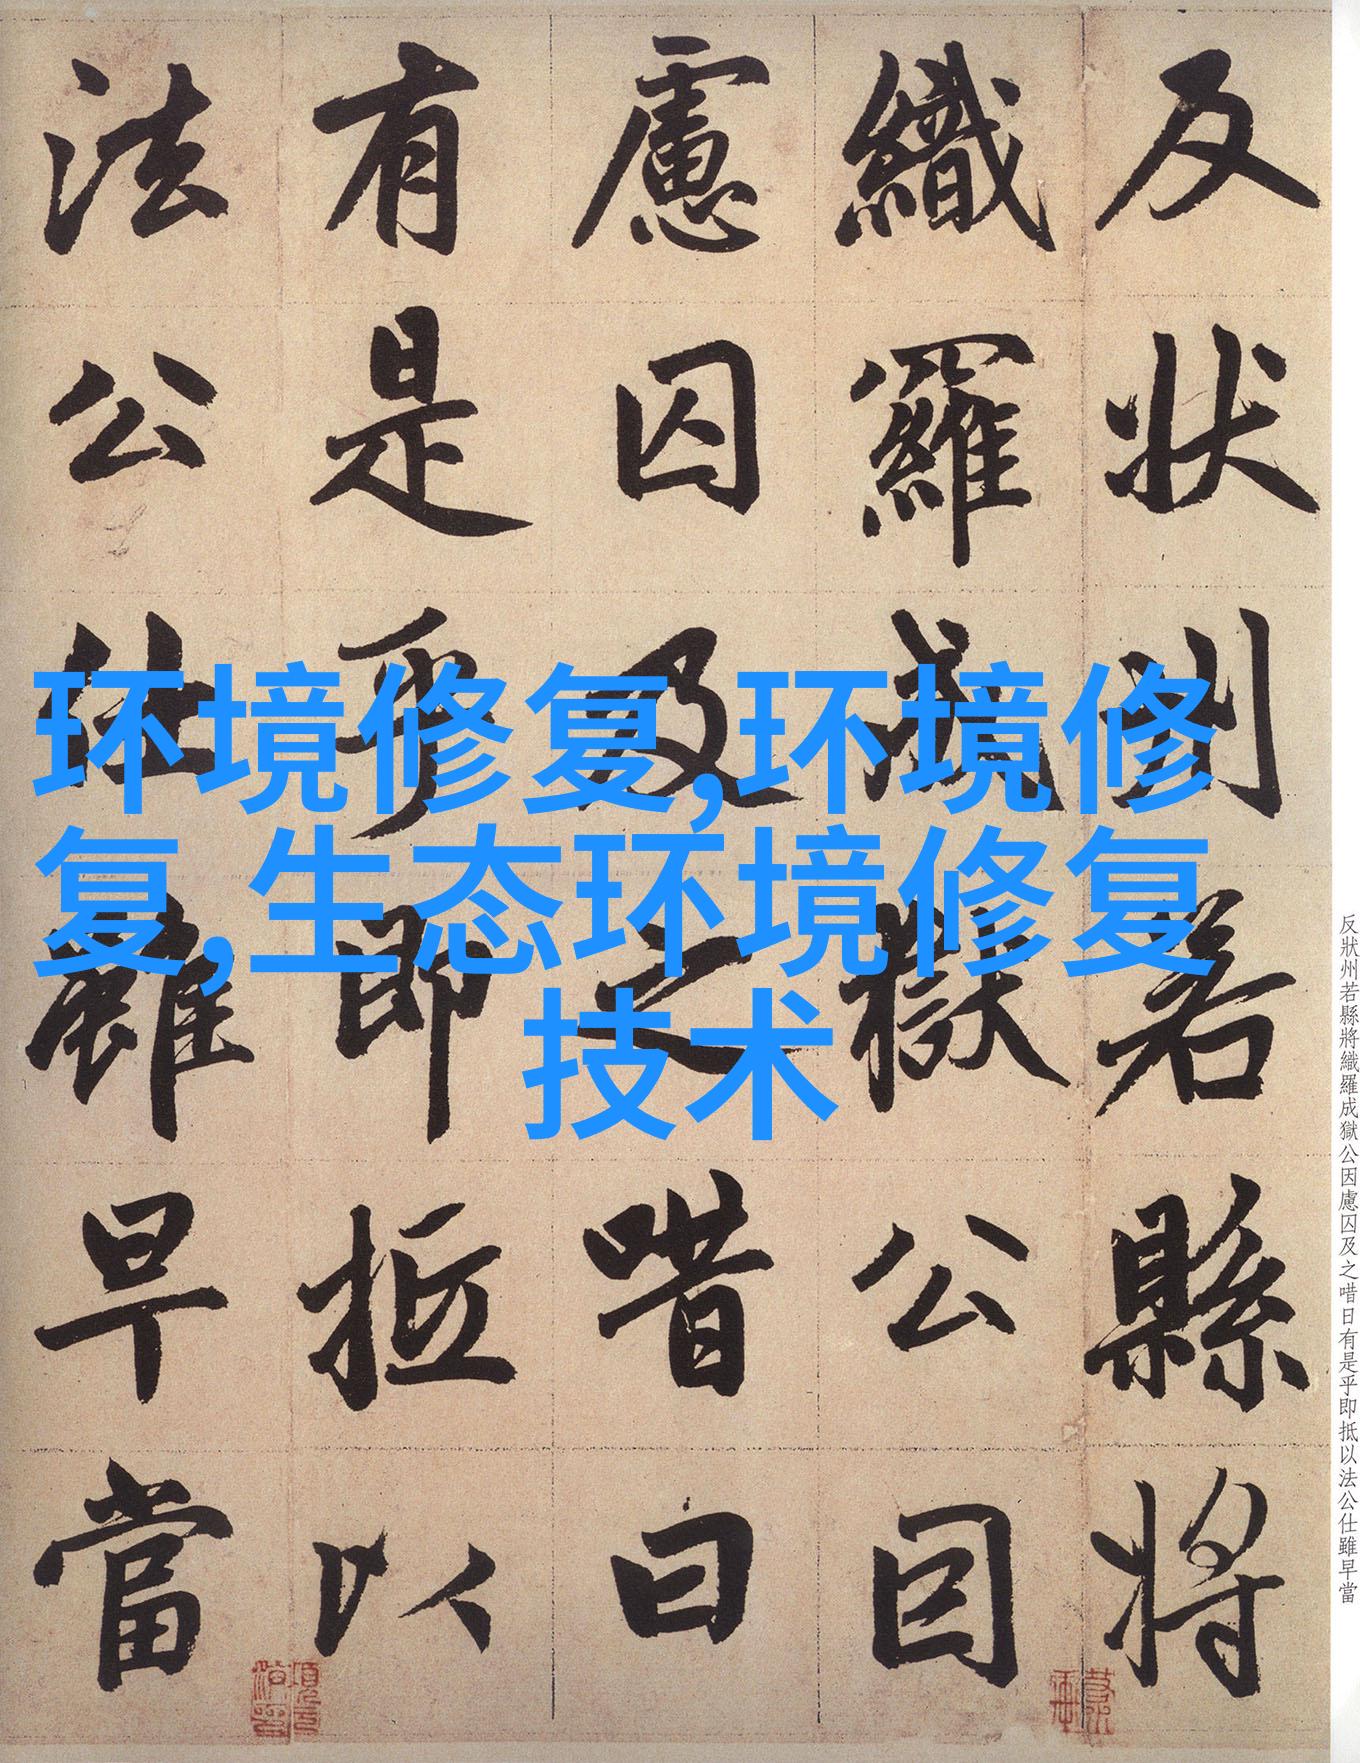 反状州若縣將
織羅成獄公因
慮囚及之唶曰
有是乎即抵以
法公仕雖早當
环境修复,环境修
复,生态环境修复
技术
反狀州若縣將織羅成獄公因慮囚及之唶日有是乎即抵以法公仕雖早當